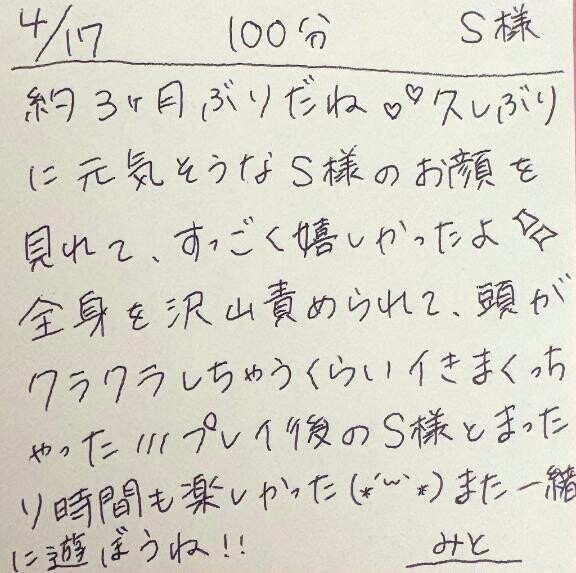 4/17 100分 S様
約3ヶ月ぶりだね♡♡久しぶり
に元気そうなS様のお顔を
見れて、すっごく嬉しかったよ✧✧
全身を沢山責められて、頭が
クラクラしちゃうくらいイきまくっち
ゃった///プレイ後のS様とまった
り時間も楽しかった(*´︶`*)また一緒
に遊ぼうね!!
みと